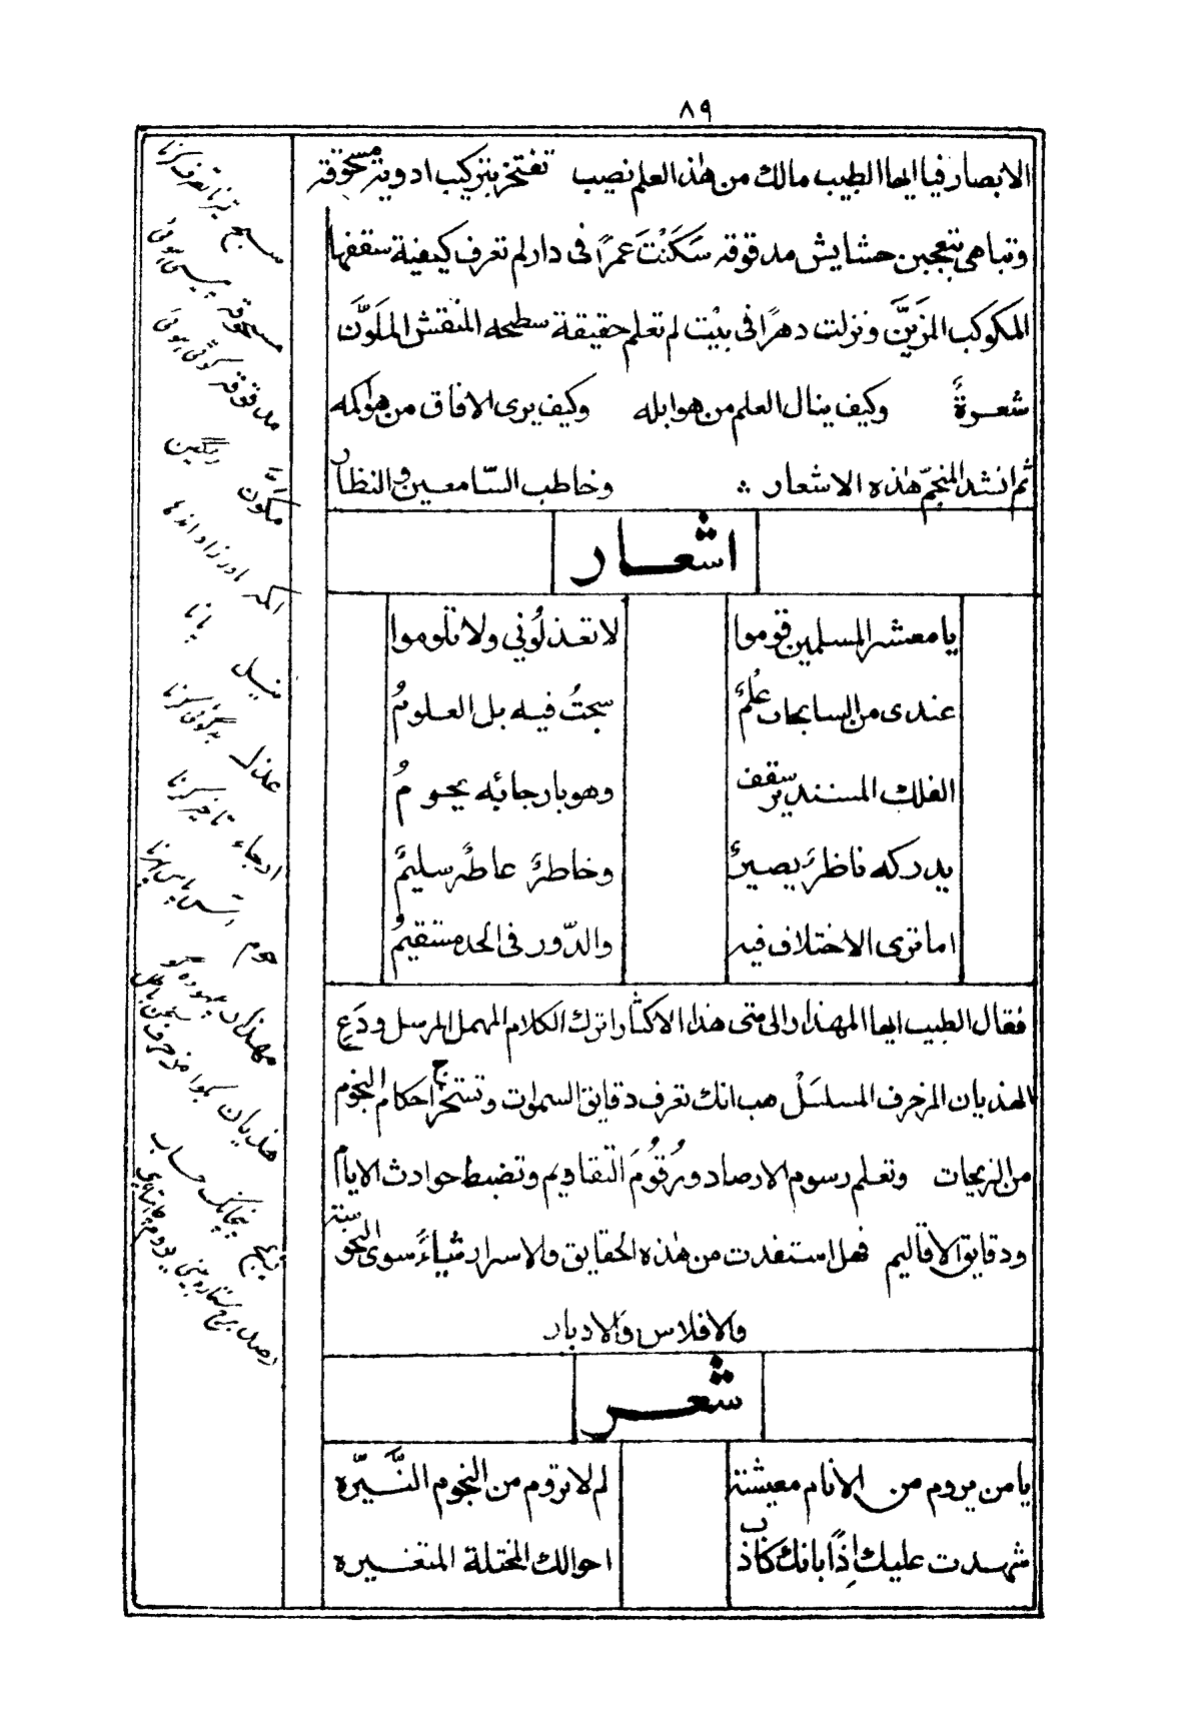 ٨٩
الابصار فيا ايها الطبيب مالك من هٰذا العلم نصيب تفتخر بتركيب ادوية مسحوقة
وتباهى بتعجين حشايش مدقوقه سَكَنْتَ عمرًا فى دار لم تعرف كيفية سقفها
المكوكب المزيّن ونزلت دهرًا فى بيْت لم تعلم حقيقة سطحه المنقش الملوَّن
شعرةٌ وكيف ينال العلم من هو ابله وكيف يرى الافاق من هو اكمه
ثم انشد المنجمّ هٰذه الاشعار ؞ وخاطب السّامعين والنظار
اشعار
يا معشر المسلمين قوموا لا تعذلُوني ولا تلوموا
عندى من السابحات عُلمٌ سبحتُ فيه بل العلومُ
الفلك المستدير سقف وهو بارجائه يحومُ
يدركه ناظرٌ بصيرٌ وخاطرٌ عاطر سليمٌ
اما ترى الاختلاف فيه والدّور فى الحد مستقيمُ
فقال الطبيب ايها المهذار الى متى هذا الاكثار اترك الكلام المهمل المرسل ودَعِ
الهذيان المزخرف المسلسَلْ هب انك تعرف دقايق السموات وتستخرج احكام النجوم
من الزيجات وتعلم رسوم الارصاد ورُقُومَ التقاديم وتضبط حوادث الايام
ودقايق الاقاليم فهل استفدت من هٰذه الحقايق والاسرار شياءً سوى النحوسة
والافلاس والادبار
شعر
يا من يروم من الانام معيشة لم لا تروم من النجوم النَّيّره
شهدت عليك اِذًا بانك كاذب احوالك المختلة المتغيره
مسحوقه پيسى ہوئى
مدقوقه كوٹى ہوئى
ملوّن رنگين
اكمه مادر زاد اندها
نيل پانا
عذل
ارجاء تاخير كرنا
حوم
مهذار بيهوده گو
هذيان
زيج
رصد